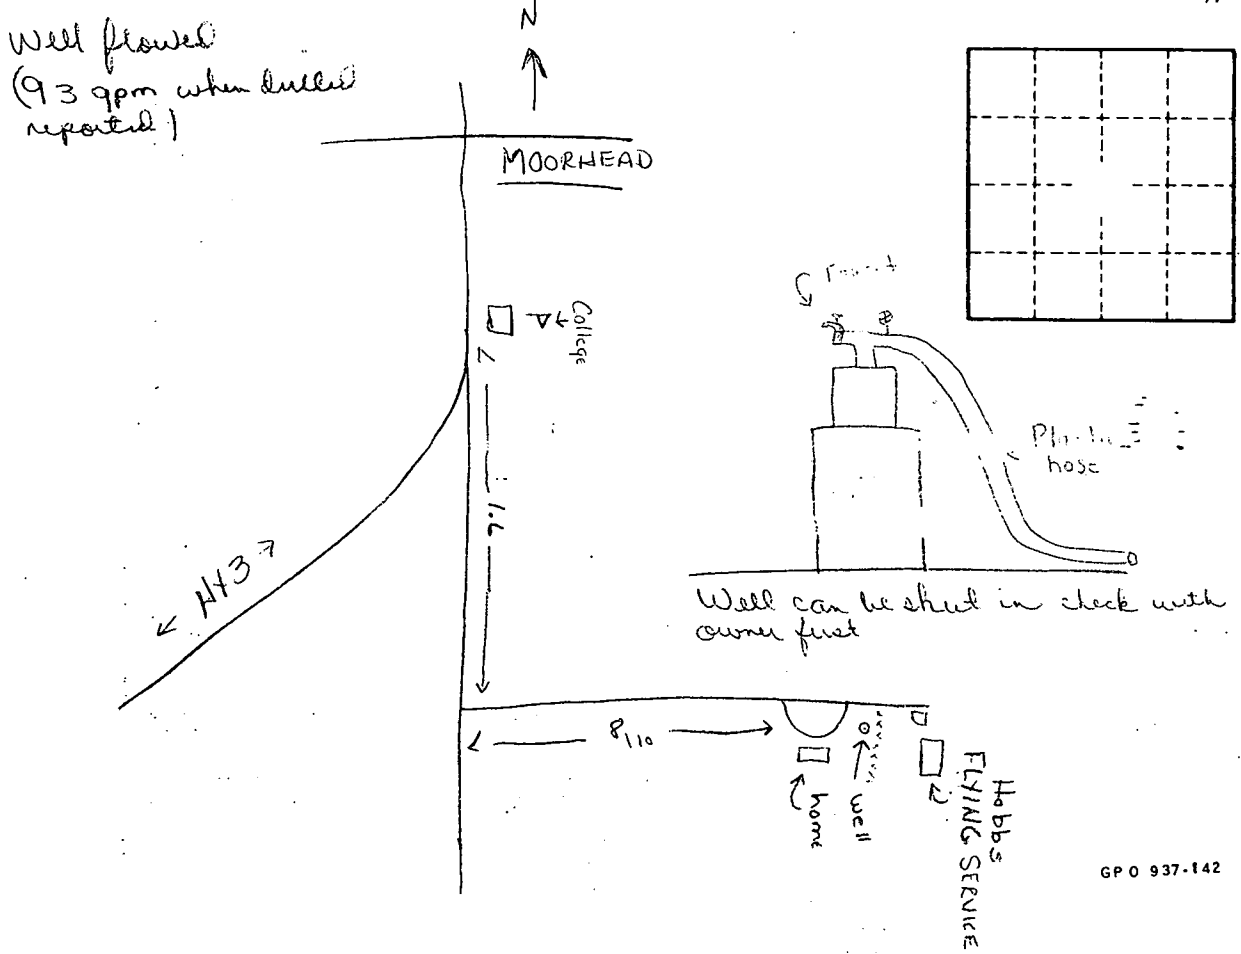 Well flowed
(93 gpm when drilled
reported)
N
MOORHEAD
College
1.6
HY3
hose
Well can be shut in check with
owner first
8/10
home
well
Hobbs
FLYING SERVICE
GPO 937-142